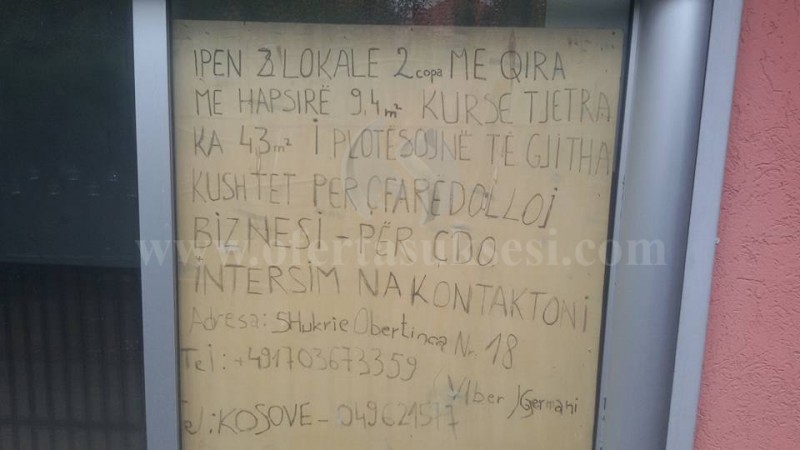 IPEN 3 LOKALE 2 copa ME QIRA
ME HAPSIRË 9,4 m² KURSE TJETRA
KA 4,3 m² I PLOTËSOJNË TË GJITHA
KUSHTET PËR ÇFARËDOLLOJ
BIZNESI - PËR ÇDO
INTERSIM NA KONTAKTONI
Adresa: SHukrie Obertinca Nr. 18
Tel: +491703673359
Viber / Gjermani
Tel: KOSOVË - 049621577
www.ofertasuksesi.com